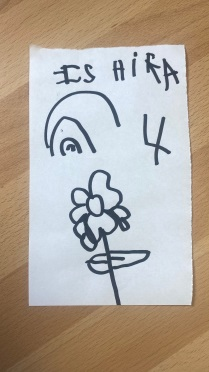 IS HIRA
4